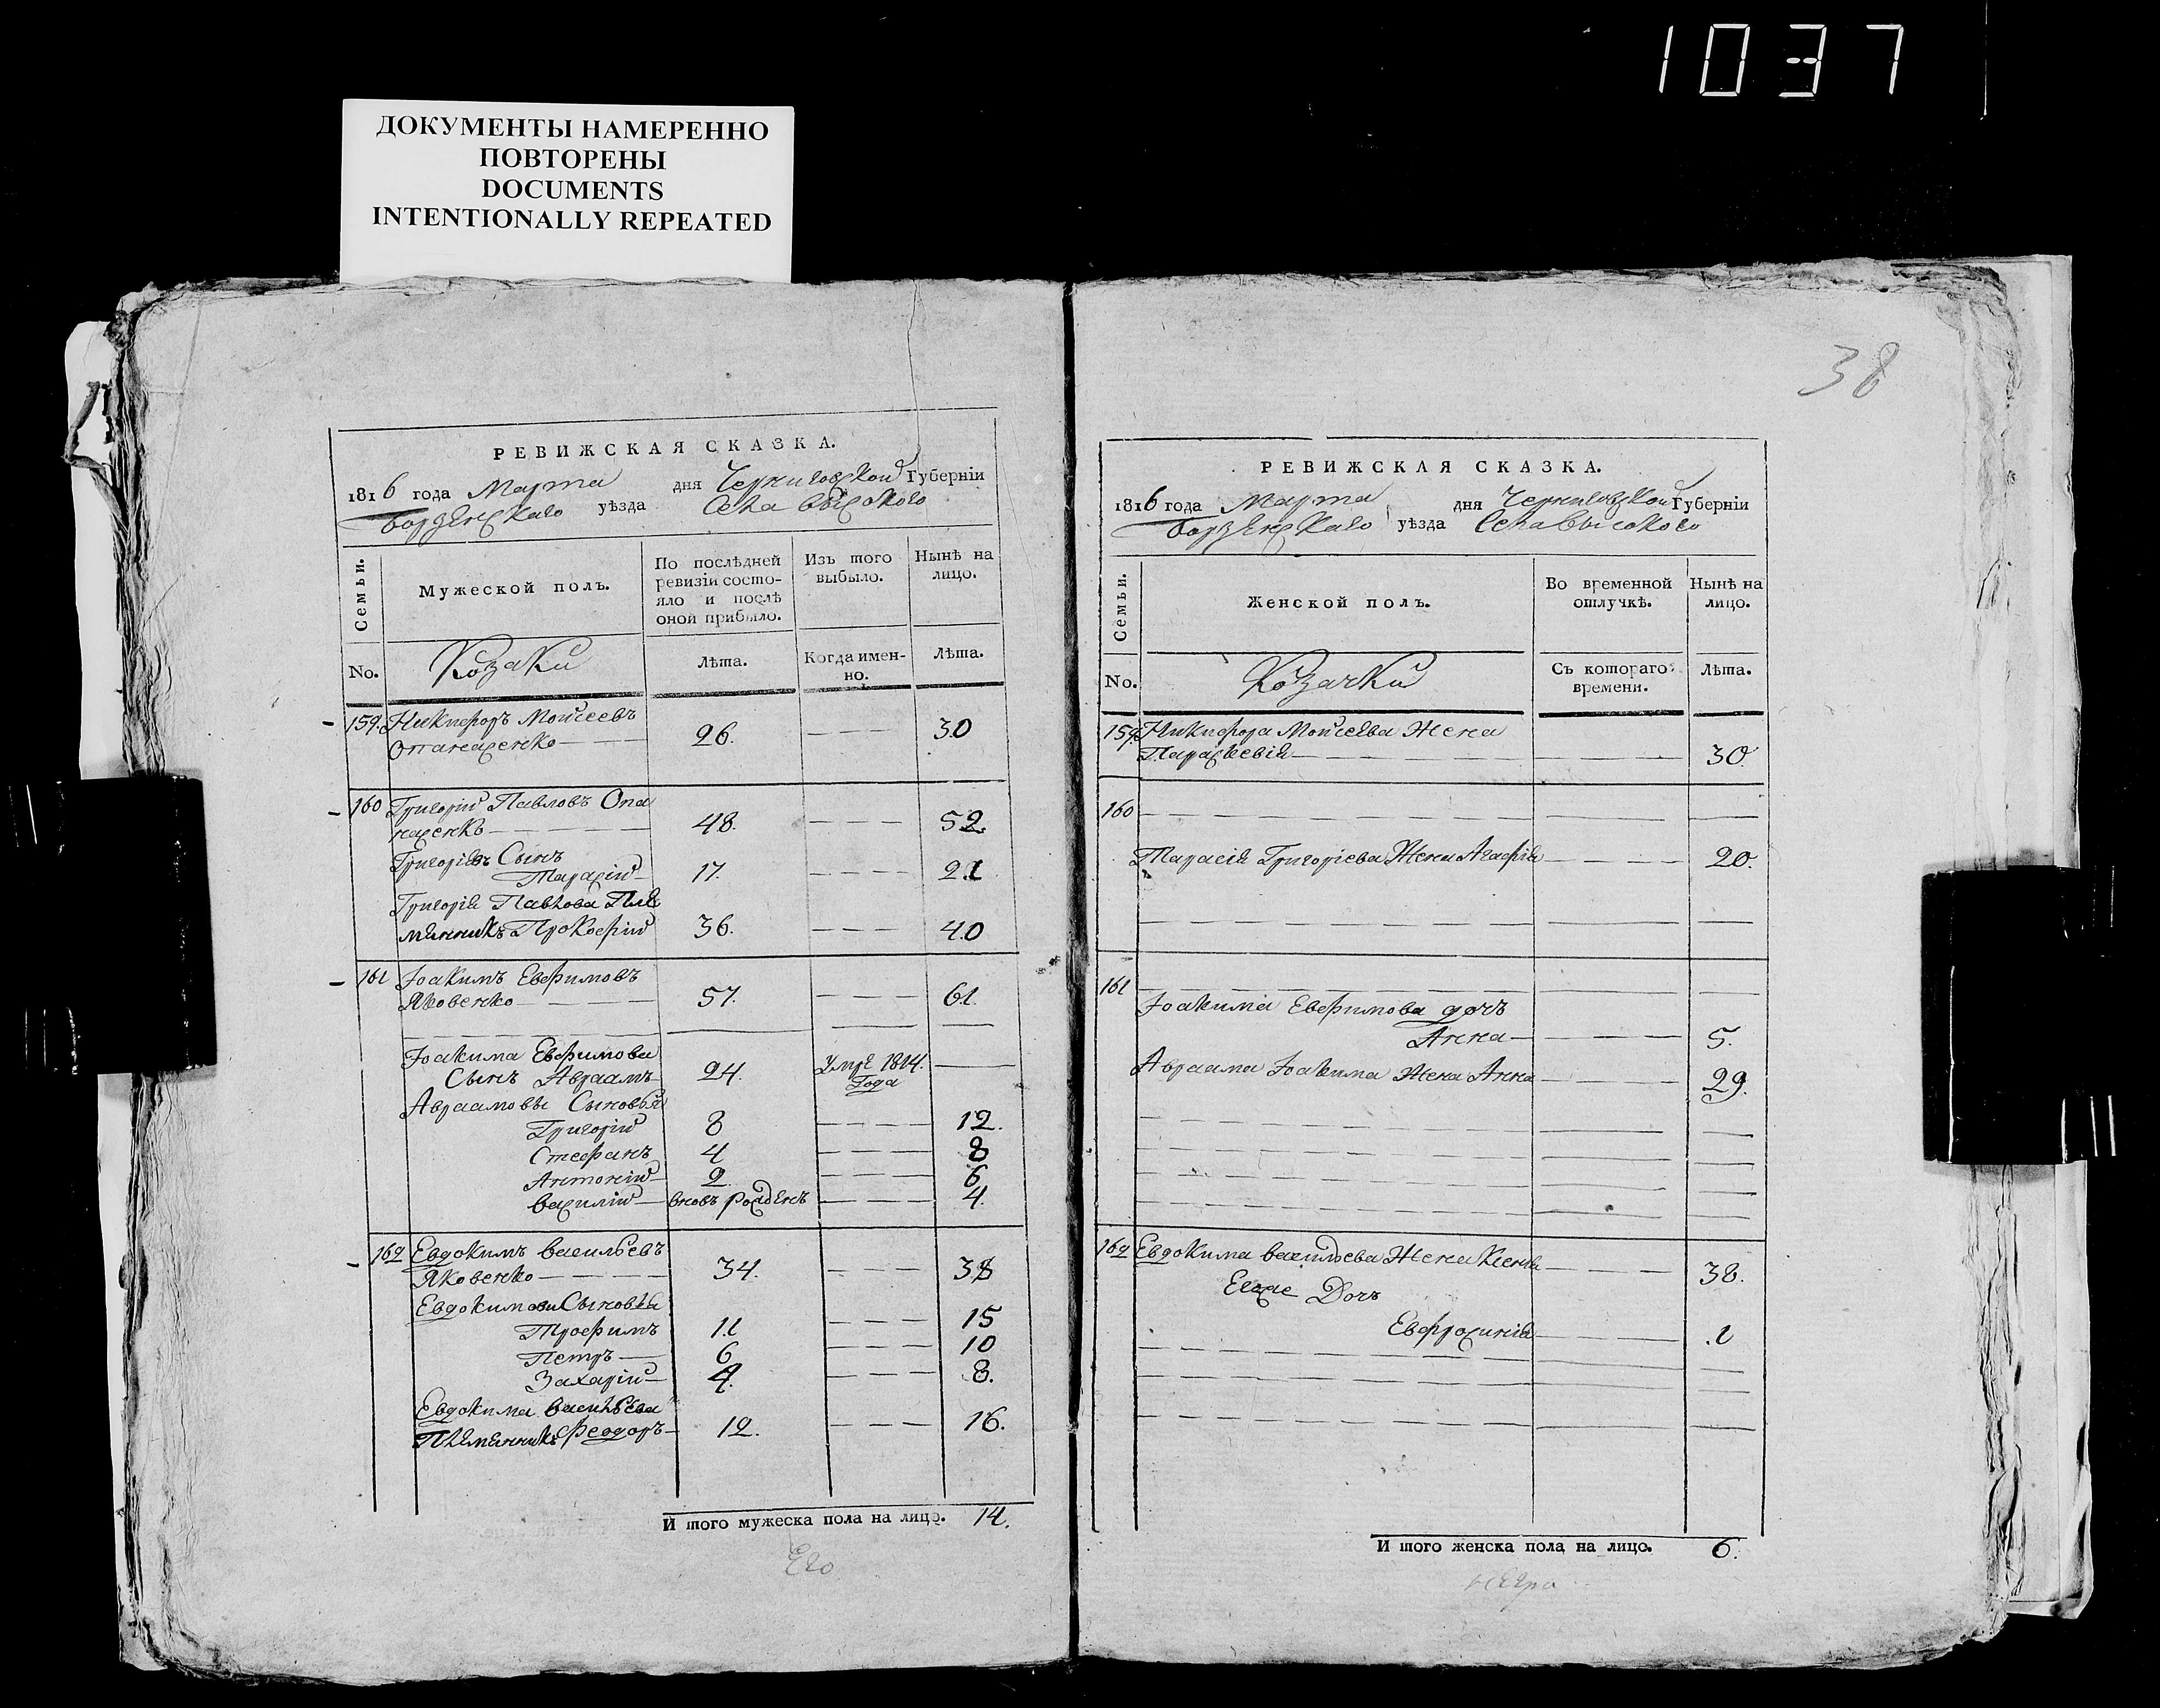 1037
ДОКУМЕНТЫ НАМЕРЕННО
ПОВТОРЕНЫ
DOCUMENTS
INTENTIONALLY REPEATED
РЕВИЖСКАЯ СКАЗКА.
1816 года Марта дня Черниговской Губерніи
Борзенскаго уѣзда Села Высокого
Семьи.
Мужеской полъ.
По послѣдней
ревизіи состо-
яло и послѣ
оной прибыло.
Изъ того
выбыло.
Нынѣ на
лицо.
No.
Козаки
Лѣта.
Когда имен-
но.
Лѣта.
159. Никифоръ Моисеевъ
Опанасенко 26. 30
160 Григорій Павловъ Опа
насенко 48. 52.
Григоріевъ Сынъ
Тарасій 17. 21
Григорія Павлова Пле
мянникъ Прокофій 36. 40
161 Іоакимъ Евфимовъ
Яковенко 57. 61.
Іоакима Евфимова
Сынъ Авраамъ 24. Умре 1814.
Года
Авраамовы Сыновья
Григорій 8 12.
Стефанъ 4 8
Антоній 2 6
Василій вновь рожденъ 4.
162 Евдокимъ Васильевъ
Яковенко 34. 38
Евдокимовы Сыновья
Трофимъ 11 15
Петръ 6 10
Захарій 4. 8.
Евдокима Васильева
Племянникъ Феодоръ 12. 16.
И того мужеска пола на лицо. 14.
Его
38
РЕВИЖСКАЯ СКАЗКА.
1816 года Марта дня Черниговской Губерніи
Борзенскаго уѣзда Села Высокого
Семьи.
Женской полъ.
Во временной
отлучкѣ.
Нынѣ на
лицо.
No.
Козачки
Съ котораго
времени.
Лѣта.
159. Никифора Моисеева Жена
Параскевія 30.
160
Тарасія Григоріева Жена Агафія 20.
161
Іоакима Евфимова дочь
Анна 5.
Авраама Іоакима Жена Анна 29.
162 Евдокима Васильева Жена Ксенія 38.
Дочь
Евфросинія 1
И того женска пола на лицо. 6.